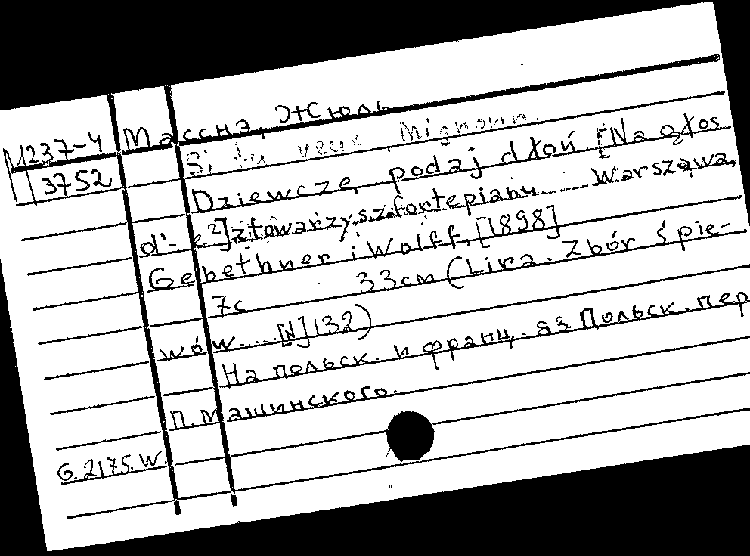 М237-4 Массна, Жюль
13752 Si tu veux, Mignonn.
Dziewczę, podaj dłoń [Na głos
d'- z towarzysz. fortepianu.... Warszawa,
Gebethner i Wolff, [1898]
7с 33см (Lira. Zbór śpie-
wów.... [N] 132)
На польск. и франц. яз. Польск. пер.
П. Машинского.
G.2175.W